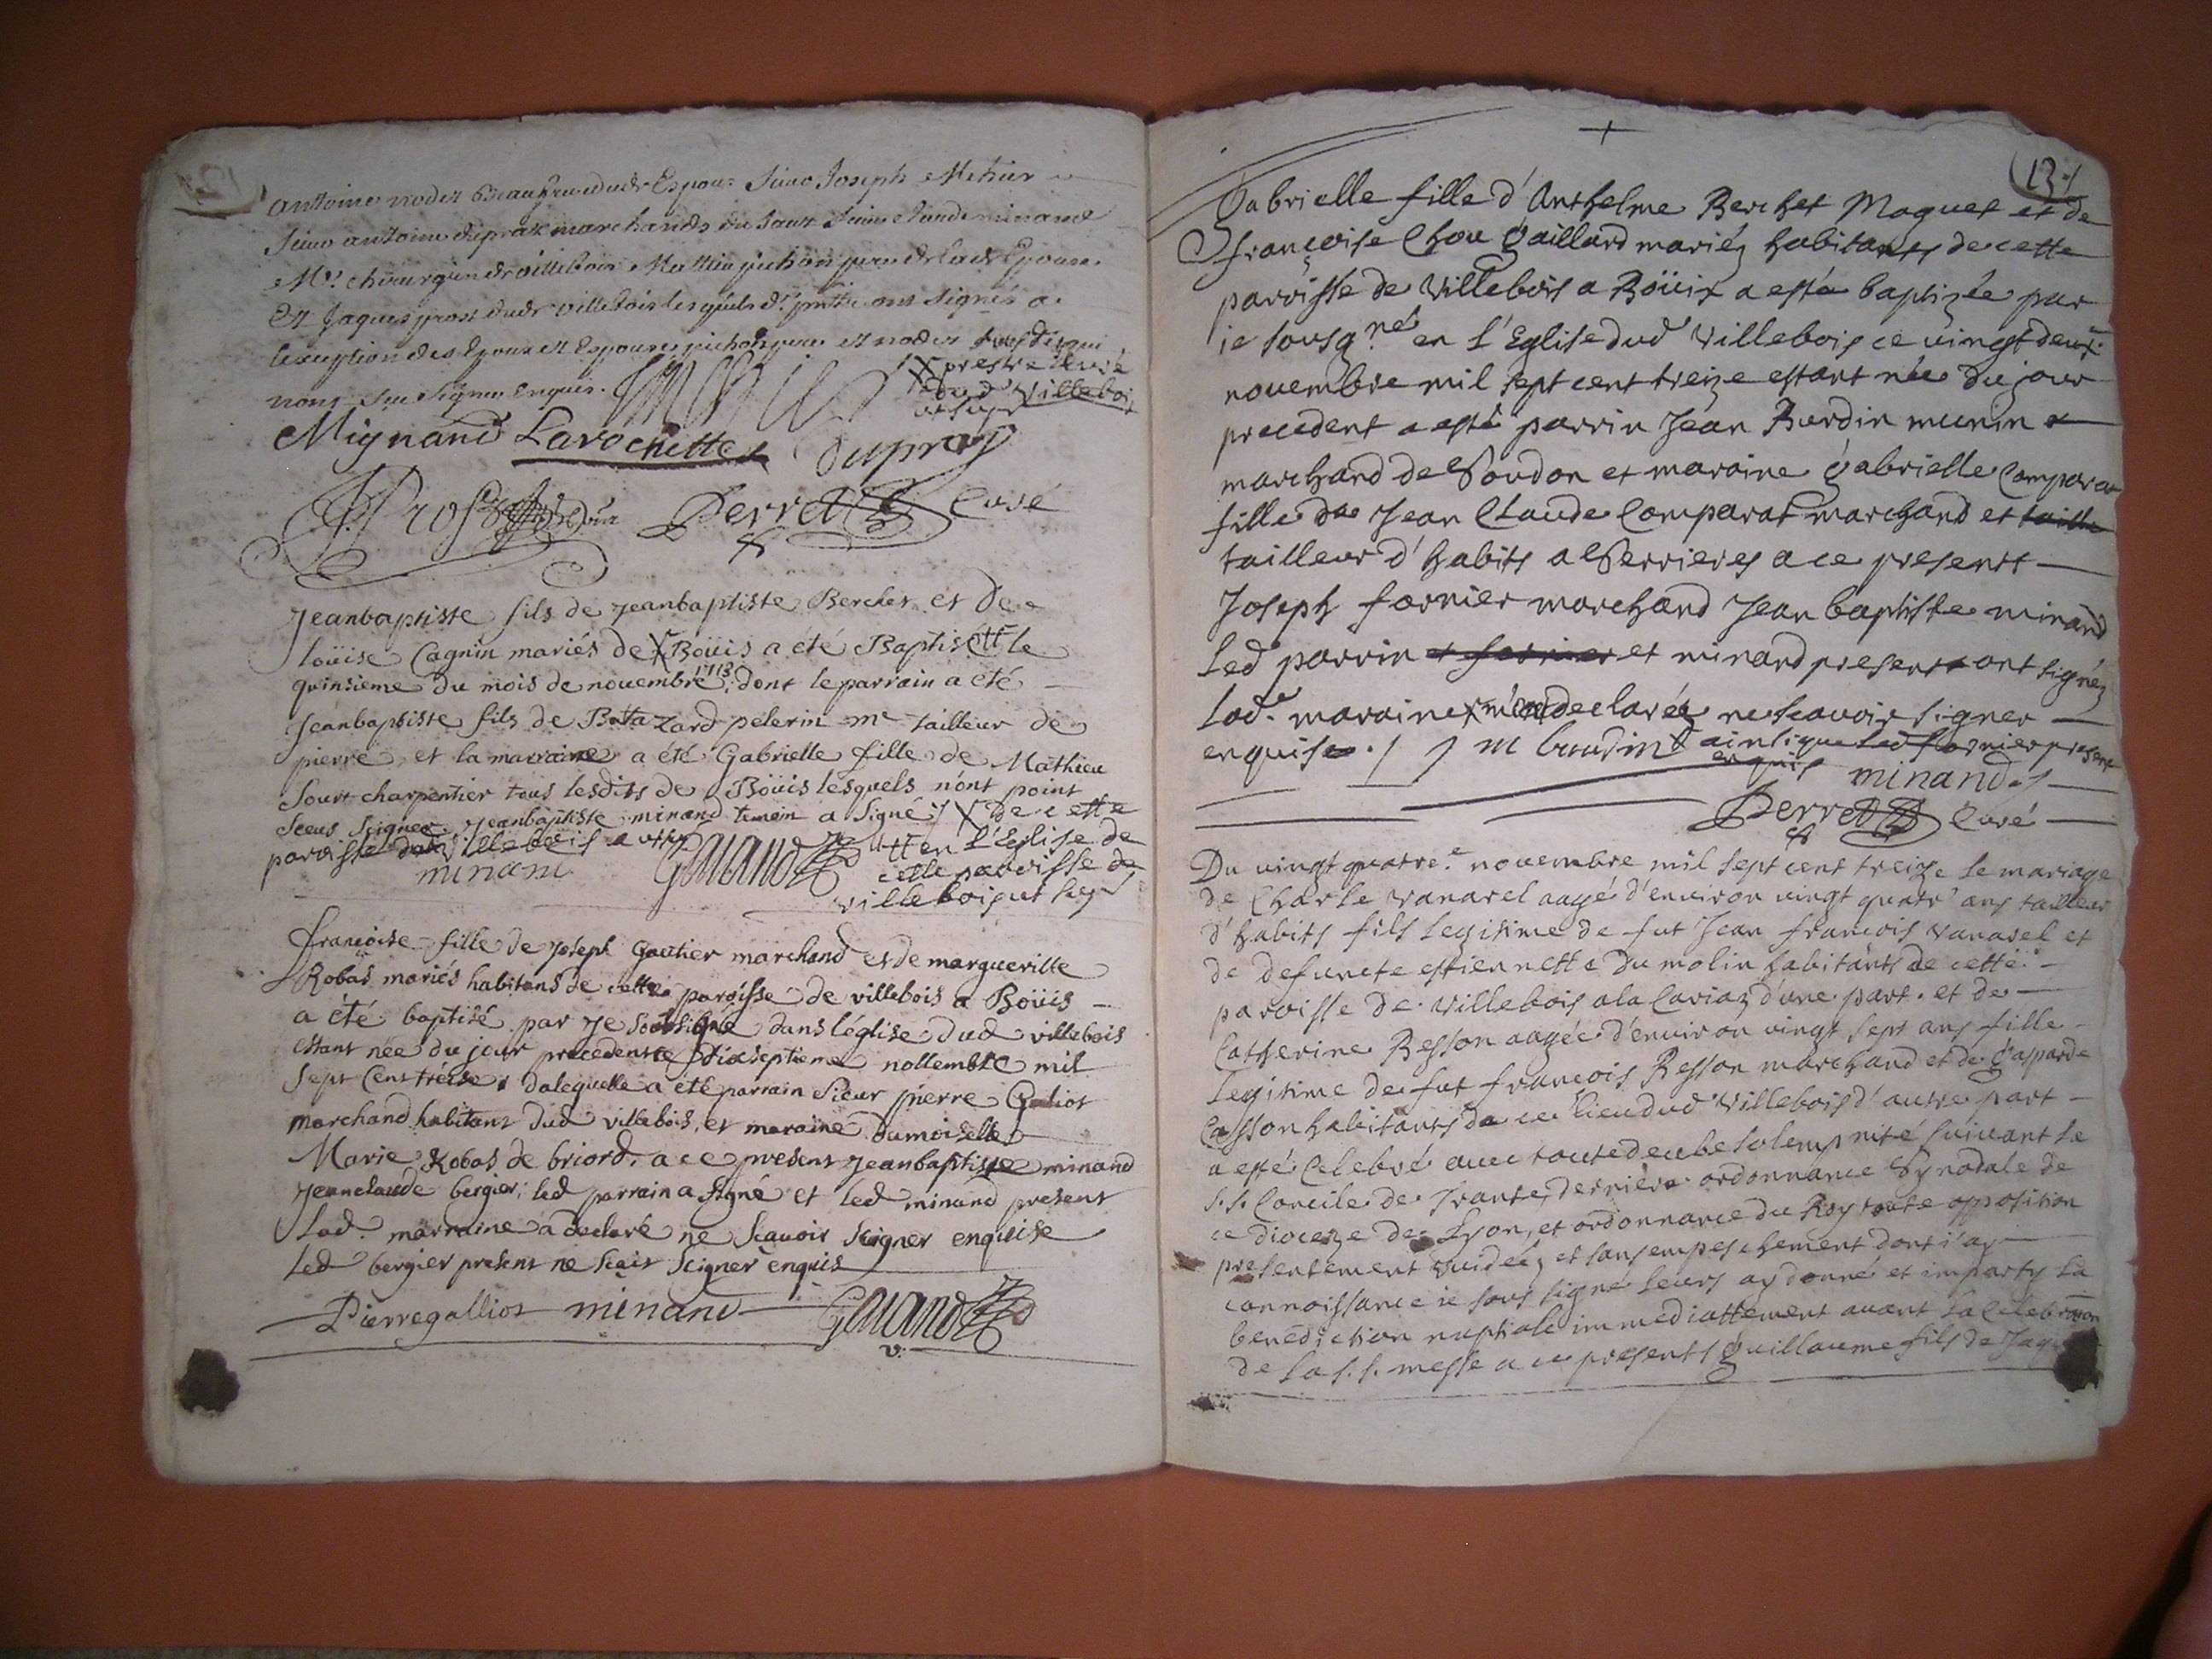 antoine nodet Beaufrere dudt Espoux Sieur Joseph Methier
Sieur antoine duprat marchands du Sault Sieur Claude minand
Mr. chirurgien de villebois Mathieu pichon pere de lade Epouse
Et Jaques prost dudt villebois lesquels ont signés a
lexception des Epoux et Espouse pichon pere et nodet
nont Sceu Signer Enquis.
X prestre Curé
dud Villebois
Mignand Larochette Duprat
JProst Perret Curé
Jeanbaptiste fils de Jeanbaptiste Berchet et De
loüise Cagnin mariés de X Boüis a eté Baptisé tt le
quinsieme du mois de nouembre 1713, dont le parrain a été
Jeanbaptiste fils de Batazard pelerin me tailleur de
pierre et la marraine a été Gabrielle fille de Mathieu
Sourt charpentier tous lesdits de Boüis lesquels n'ont point
Sceus Seigner. Jeanbaptiste minand temoin a Signé / X De cette
paroisse dud Villebois
tt en L'Eglise de
cette paroisse de
villebois
minand
françoise fille de Joseph Gautier marchand et de marguerille
Robas mariés habitans de cette paroisse de villebois a Boüis
a été baptisé par Je Soubsigné dans léglise dud villebois
estant née du jour precedent ce dixseptieme nouembre mil
Sept Cent treise, dalequelle a été parrain Sieur pierre Galiot
marchand habitant dud villebois, et maraine dumoiselle
Marie Robas de briord, a ce present Jeanbaptiste minand
Jeanclaude bergier; led parrain a Signé et led minand present
Lad. marraine a declaré ne Scauoir Seigner enquise
Led bergier present ne Scait Seigner enquis
Pierregalliot minand
13
Gabrielle fille d'Anthelme Berchet Maguet et de
françoise Chou Gaillard mariéz habitants de cette
paroisse de Villebois a Boüix a esté baptizée par
ie sousg.né en L'Eglise dud Villebois ce vingt deux
nouembre mil sept cent treize estant née du jour
precedent a esté parrin Jean Burdin munin
marchand de Soudon et maraine Gabrielle Comparat
fille de Jean Claude Comparat marchand et taille
tailleur d'habits a Serrieres a ce present
Joseph fornier marchand Jean baptiste minand
Led parrin et fornier et minand present ont signéz
Lad. maraine declaréz ne scauoir signer
enquise. / J m burdin X ainsi que Led fornier present
enquis
minand
Perret Curé
Du vingt quatre.e nouembre mil sept cent treize Le mariage
de Charle Vanarel aagé d'enuiron vingt quatr' ans tailleur
d'habits fils legitime de fut Jean francois Vanarel et
de defuncte estiennette du molin habitants de cette
paroisse de Villebois a la Cariaz d'une part. et de
Catherine Besson aagée d'enuiron vingt sept ans fille
Legitime de fut francois Besson marchand et de Gasparde
Casson habitants de ce lieu dud Villebois d'autre part
a esté Celebré auec toute deube solempnité suiuant le
S. S. Concile de Trante, derniere ordonnance Synodale de
ce dioceze de Lyon, et ordonnance du Roy toute opposition
presentement vuidéez et sans empeschement dont i'ay
connoissance ie sous signé leurs ay donné et imparty la
benediction nuptiale immediattement auant la Celebration
de la S. S. messe a ce presents Guillaume fils de Jaque